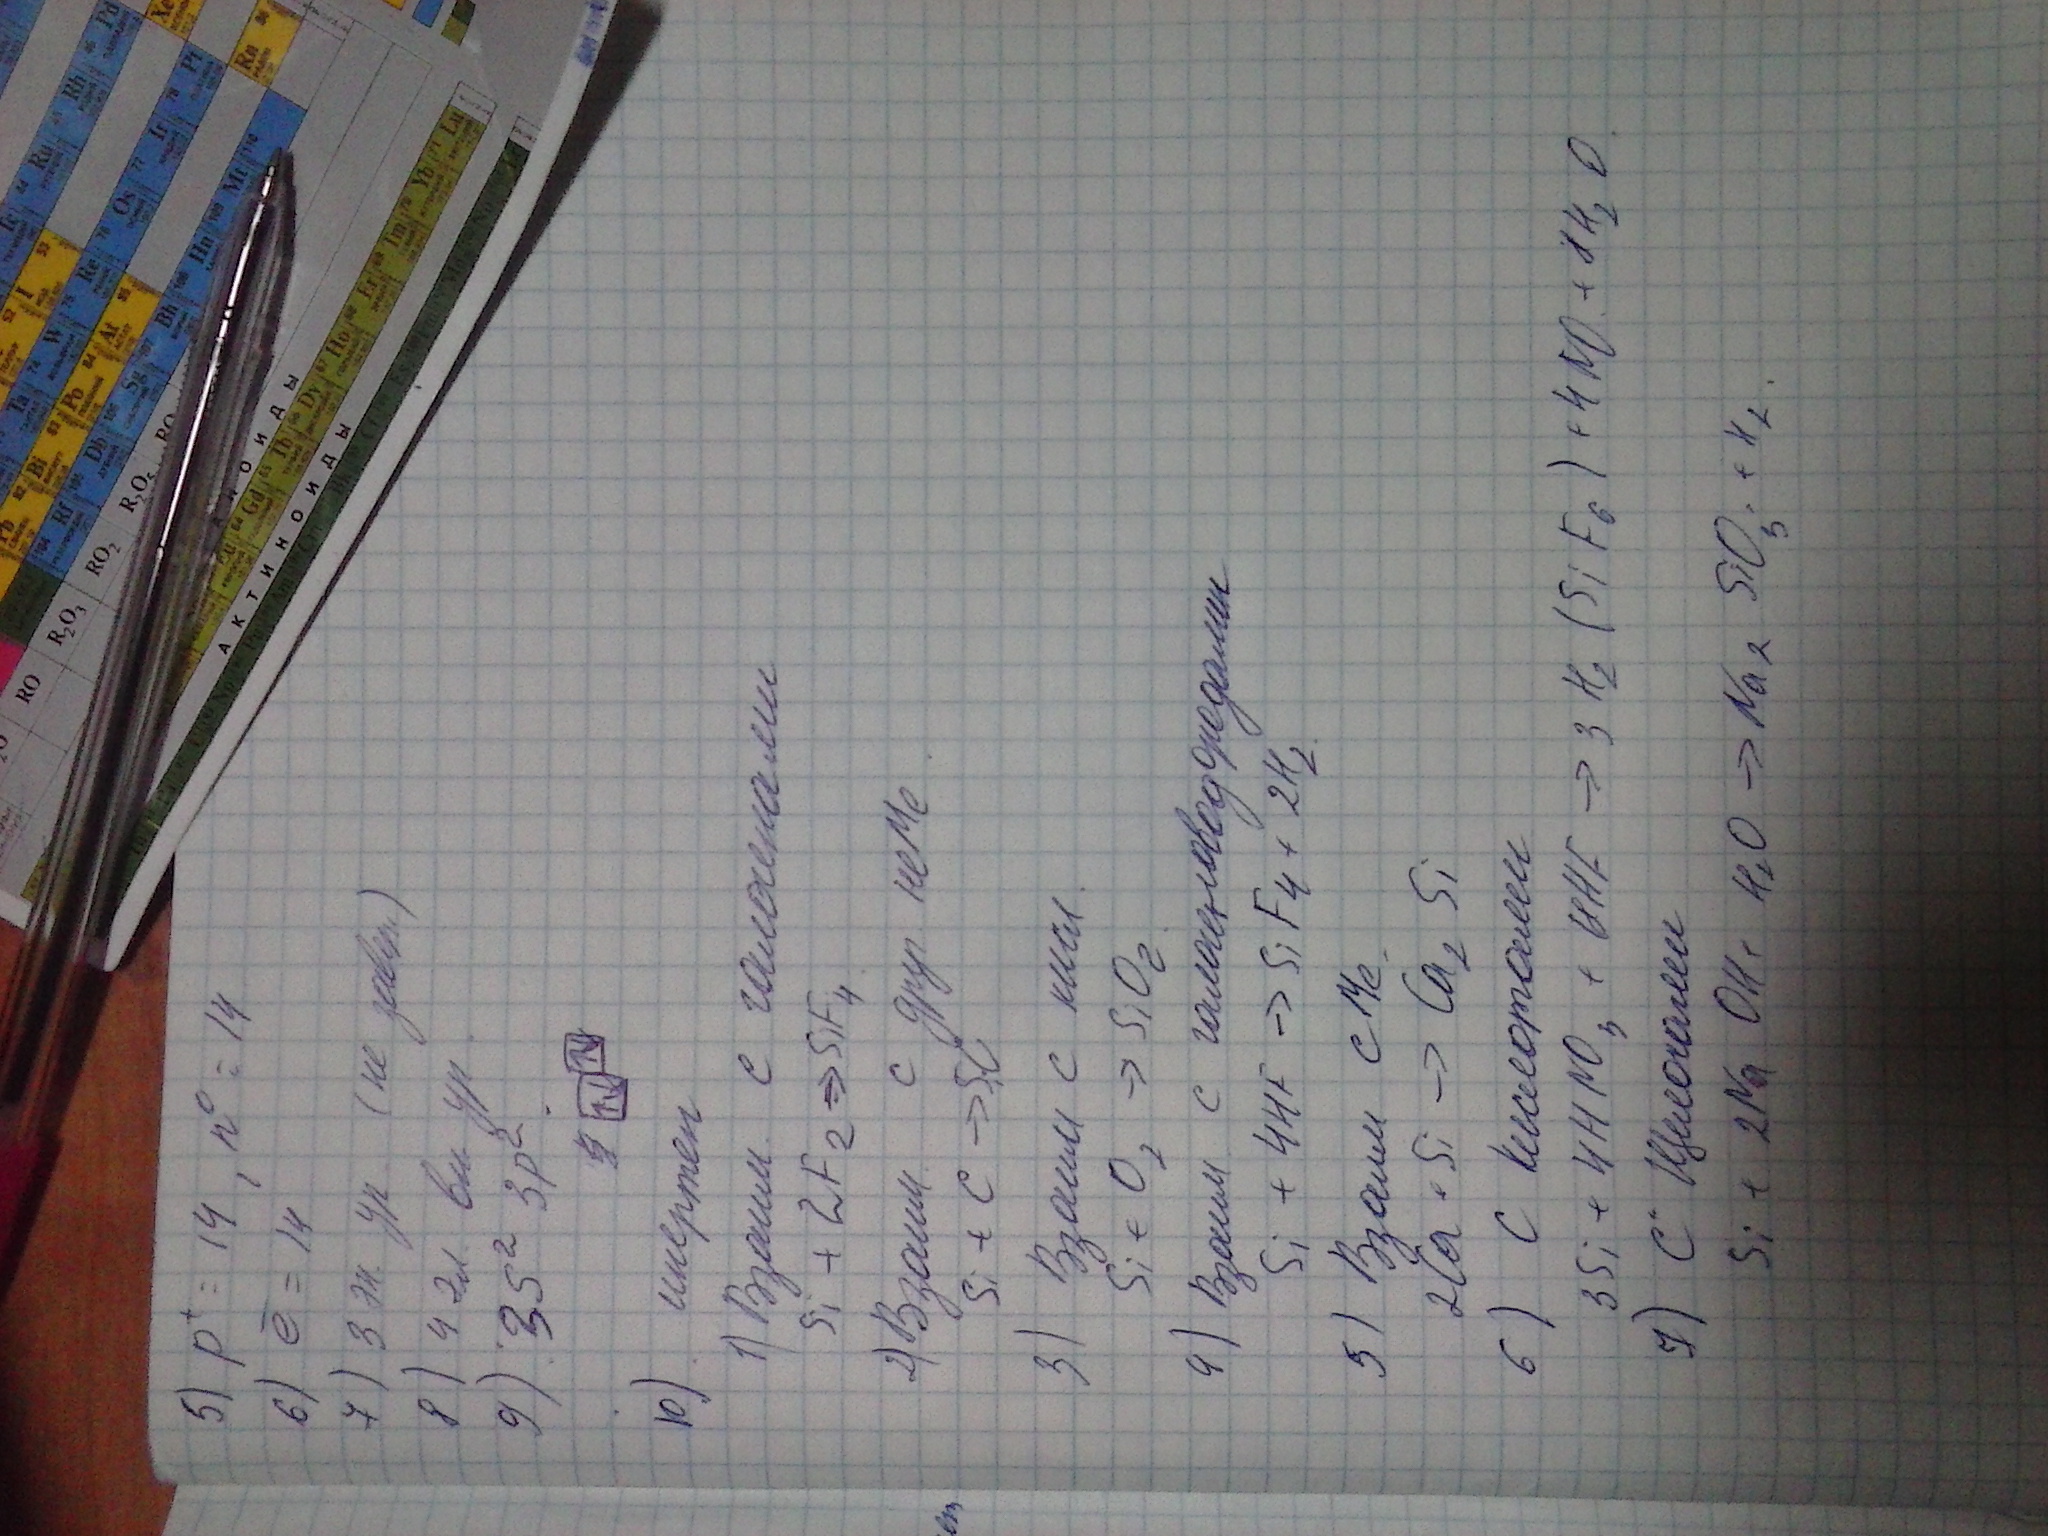 5) p⁺ = 14, n⁰ = 14
6) ē = 14
7) 3 эн. ур. (не заверш)
8) 4 эл. вн. ур.
9) 3S² 3p².
10) инертен
1) Взаим. с галогенами
Si + 2F₂ → SiF₄
2) Взаим. с друг. неМе.
Si + C → SiC
3) Взаим с кисл.
Si + O₂ → SiO₂.
4) Взаим. с галогеноводородами
Si + 4HF → SiF₄ + 2H₂.
5) Взаим с Ме.
2Ca + Si → Ca₂ Si
6) С кислотами
3Si + 4HNO₃ + 18HF → 3 H₂ (SiF₆) + 4NO + 8H₂O.
7) С щелочами
Si + 2NaOH + H₂O → Na₂ SiO₃ + H₂.
АКТИНОИДЫ
RO
R₂O₃
RO₂
R₂O₅
Pb
Bi
Po
At
Rn
Ta
W
Re
Os
Ir
Pt
Ru
Rh
Pd
I
Xe
Rf
Db
Sg
Bh
Hn
Mt
Gd
Tb
Dy
Ho
Er
Tm
Yb
Lu